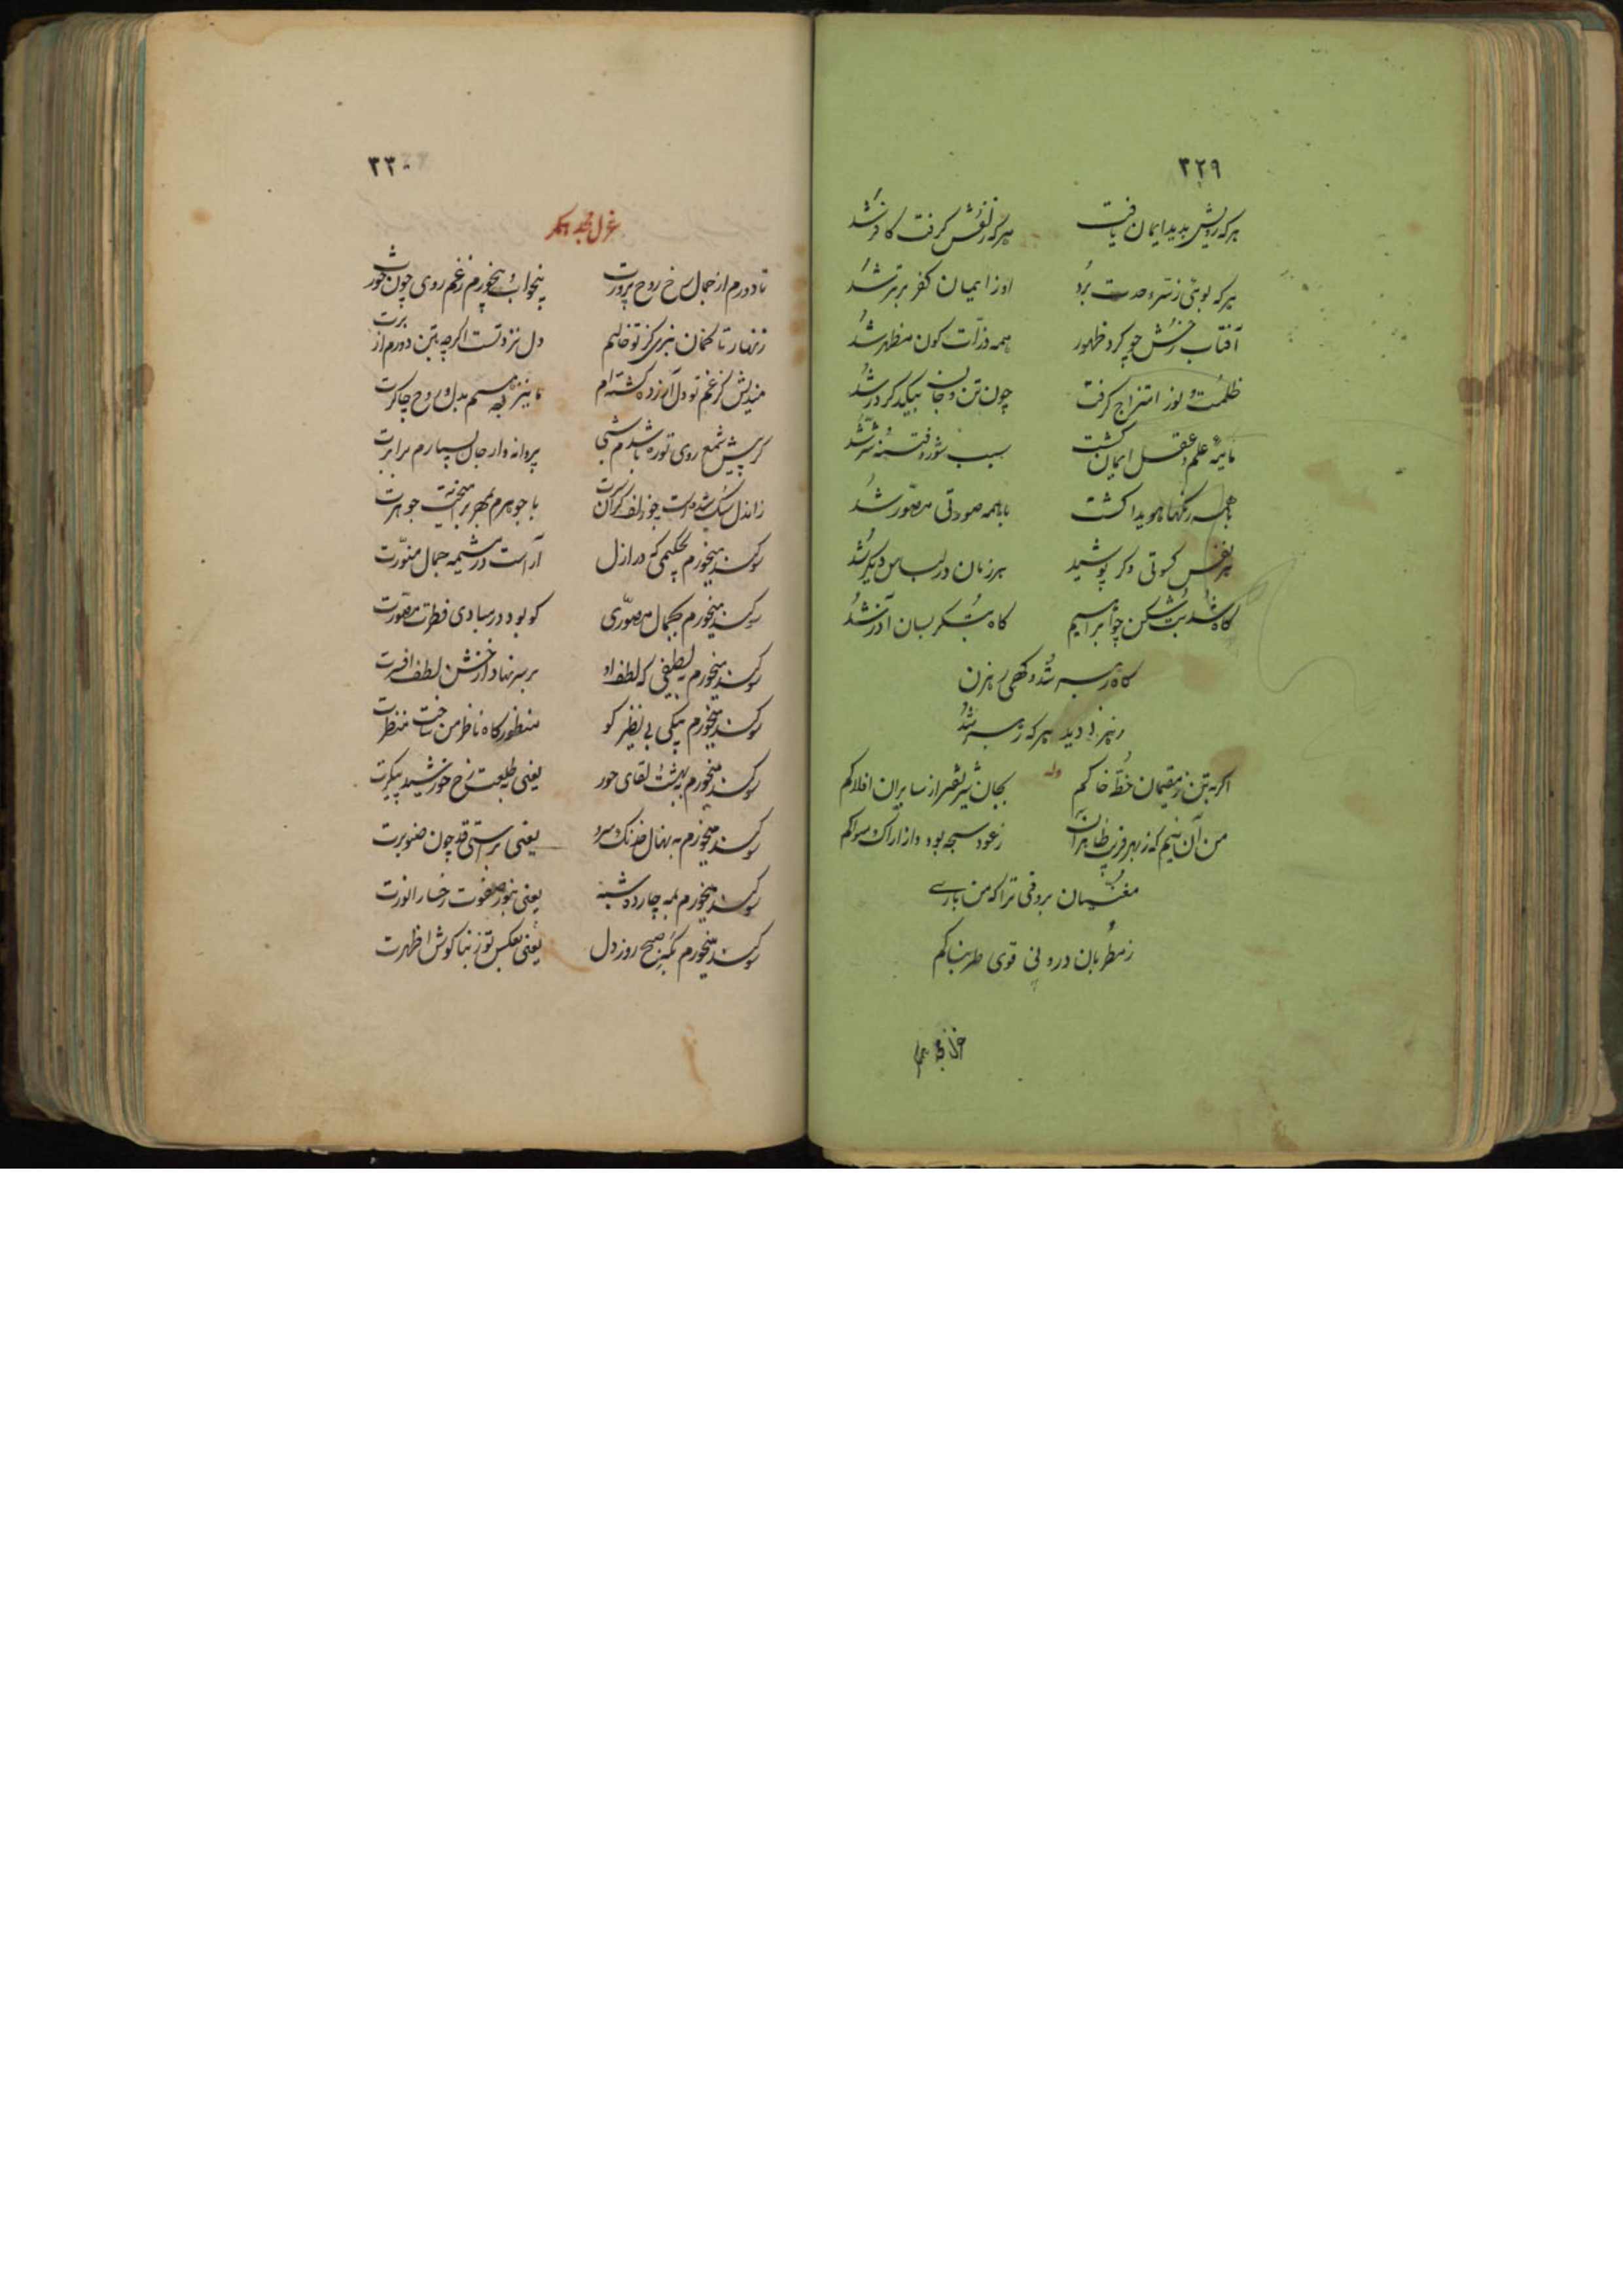 ۳۲۹
هرکه رویش بدید ایمان یافت هرکه زلفش گرفت کافر شد
هرکه بوئی ز سر وحدت برد او ز ایمان کفر برتر شد
آفتاب رخش چو کرد ظهور همه ذرات کون مظهر شد
ظلمت و نور امتزاج گرفت چون تن و جان بیکدکر در شد
مایه علم و عقل ایمان کشت سبب شور و فتنه و شر شد
با همه رنکها هویدا کشت با همه صورتی مصور شد
هر نفس کسوتی دکر پوشید هر زمان در لباس دیکر شد
کاه شد بت شکن چو ابراهیم کاه بتکر بسان آذر شد
کاه رهبر شد و کهی رهزن
رهزن دید هرکه رهبر شد
وله
اکر به تن ز مقیمان خطه خاکم بجان شریفتر از سایران افلاکم
من آن نیم که ز بهر فریب ظاهریان ز عود سبحه بود و از اراک مسواکم
مغنیان بروفی ترا که من باری
ز مطربان درونی قوی طربناکم
غزل مجد همکر
۳۳۰
غزل مجد همکر
تا دورم از جمال رخ روح پرورت بیخواب و بیخورم ز غم روی چون خورت
زنهار تا کمان نبری کز تو خالیم دل نزد تست اکرچه بتن دورم از برت
مندیش کز غم تو دل آزرده کشته‌ام تا بنده‌ام بدل و روح چاکرت
کر پیش شمع روی تو ره باشدم شبی پروانه وار جان بسپارم برابرت
زاندل سبک شدست چو زلف کران سرت با جوهرم بمهر برآمیخت جوهرت
سوکند میخورم بحکیمی که در ازل آراست در مشیمه جمال منورت
سوکند میخورم بکمال مصوری کو بود در مبادی فطرت مصورت
سوکند میخورم بلطیفی که لطف او بر سر نهاد از خنش لطف افسرت
سوکند میخورم بیکی بی نظیر کو منظور کاه ناظر من ساخت منظرت
سوکند میخورم ببهشت لقای حور یعنی بطلعت رخ خورشید پیکرت
سوکند میخورم به نهال خدنک و سرو یعنی براستی قد چون صنوبرت
سوکند میخورم بمه چارده شبه یعنی بنور صفوت رخسار انورت
سوکند میخورم بصبح روز دل یعنی بعکس نور بناکوش اظهرت